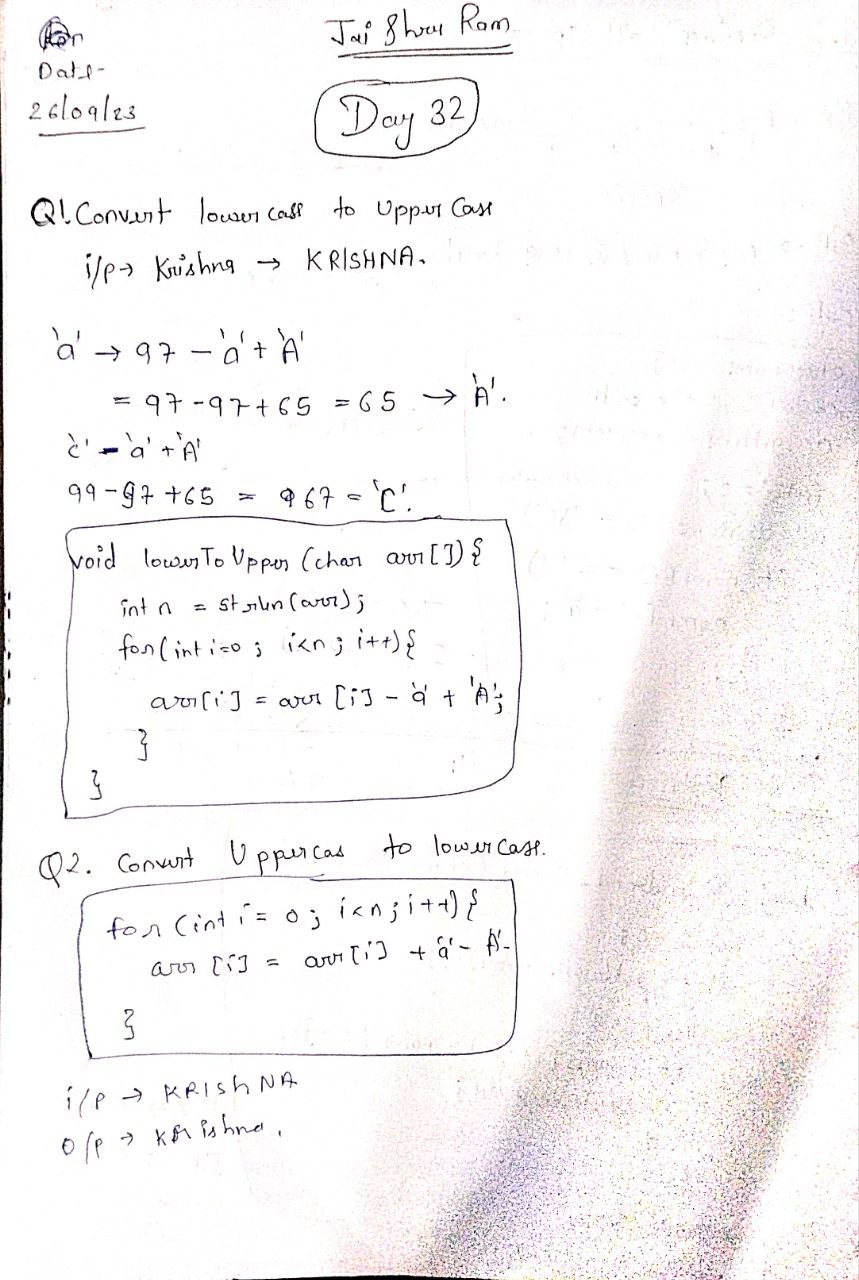 Jai Shree Ram
Date-
26/09/23
Day 32
Q1. Convert lower case to Upper Case
i/p → Krishna → KRISHNA.
'a' → 97 - 'a' + 'A'
= 97-97+65 = 65 → 'A'.
'c' - 'a' + 'A'
99-97+65 = 67 = 'C'.
void lowerToUpper (char arr[]) {
int n = strlen(arr);
for(int i=0; i<n; i++){
arr[i] = arr[i] - 'a' + 'A';
}
}
Q2. Convert Uppercas to lowercase.
for (int i = 0; i<n; i++) {
arr [i] = arr[i] + 'a' - 'A'-
}
i/p → KRIShNA
o/p → krishna.